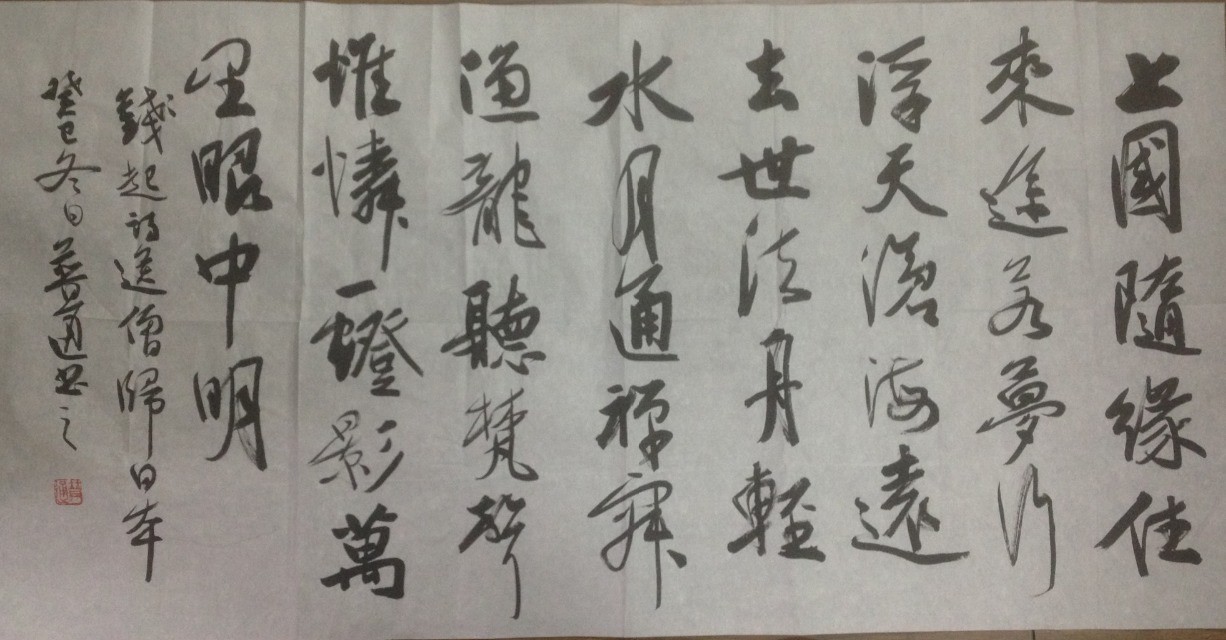 上國隨緣住
來途若夢行
浮天滄海遠
去世法舟輕
水月通禪寂
漁龍聽梵聲
惟憐一燈影萬
里眼中明
錢起詩送僧歸日本
癸巳冬日普通書之